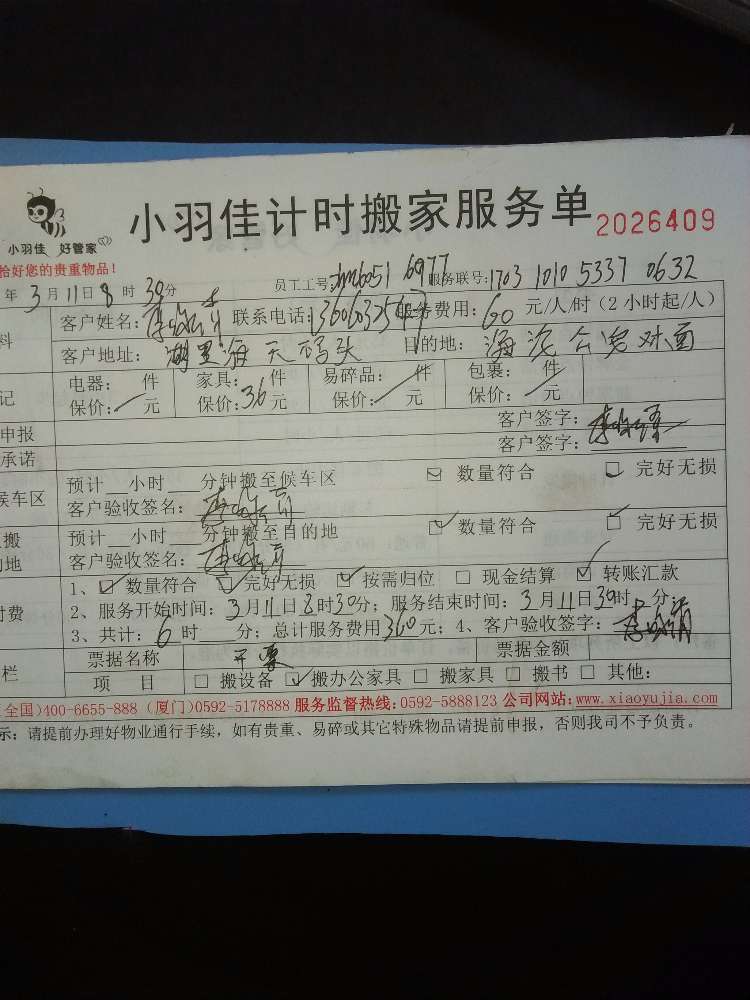 小羽佳 好管家
小羽佳计时搬家服务单 2026409
恰好您的贵重物品！
年 3月11日8时30分 员工工号: 服务联号:1703 1010 5337 0632
料 客户姓名: 联系电话: 服务费用: 60 元/人/时（2小时起/人）
客户地址: 湖里海天码头 目的地: 海沧公寓对面
记 电器: 件 家具: 件 易碎品: 件 包裹: 件
保价: 元 保价:36元 保价: 元 保价: 元
申报 客户签字:
承诺 客户签字:
候车区 预计 小时 分钟搬至候车区 数量符合 完好无损
客户验收签名:
搬 预计 小时 分钟搬至目的地 数量符合 完好无损
的地 客户验收签名:
1、 数量符合 完好无损 按需归位 现金结算 转账汇款
付费 2、服务开始时间: 3月11日8时30分; 服务结束时间: 3月11日30时 分;
3、共计: 6时 分; 总计服务费用360元; 4、客户验收签字:
票据名称 不要 票据金额
栏 项 目 搬设备 搬办公家具 搬家具 搬书 其他:
全国)400-6655-888 (厦门)0592-5178888 服务监督热线:0592-5888123 公司网站:www.xiaoyujia.com
示: 请提前办理好物业通行手续，如有贵重、易碎或其它特殊物品请提前申报，否则我司不予负责。